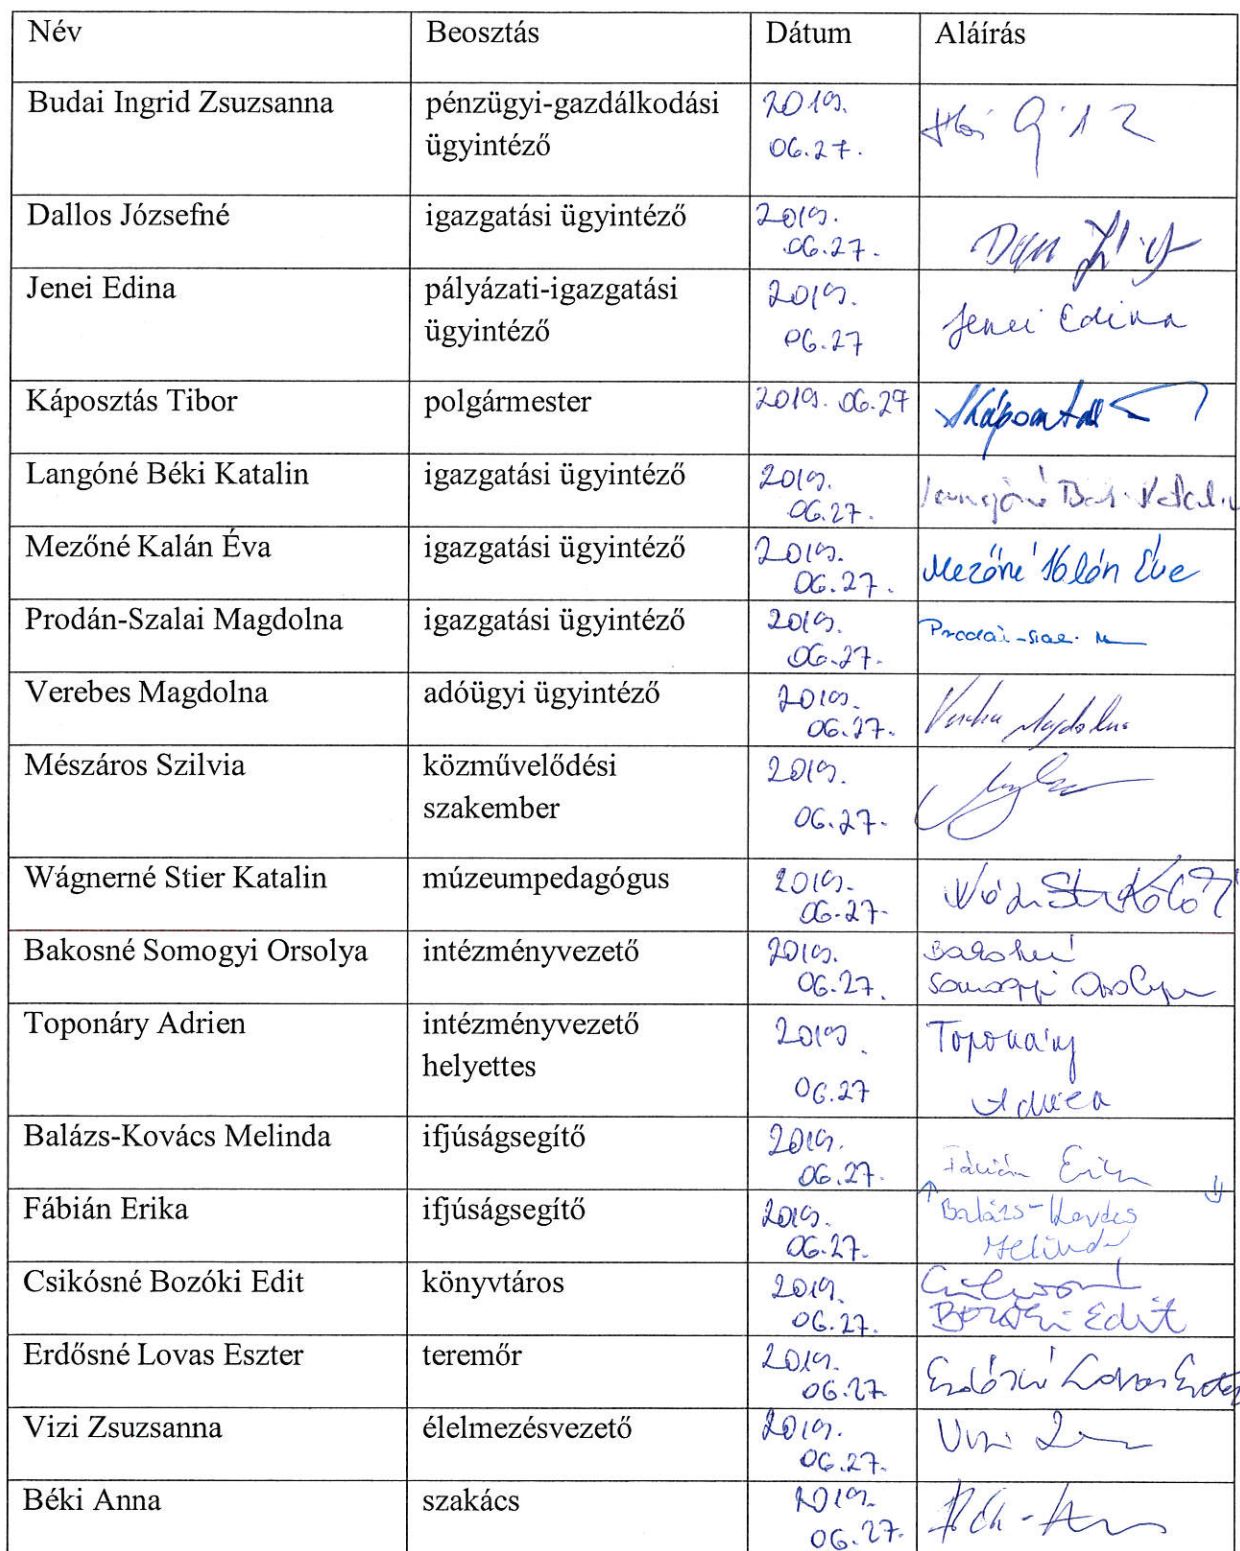 Név Beosztás Dátum Aláírás
Budai Ingrid Zsuzsanna pénzügyi-gazdálkodási 2019.
ügyintéző 06.27.
Dallos Józsefné igazgatási ügyintéző 2019.
06.27.
Jenei Edina pályázati-igazgatási 2019.
ügyintéző 06.27 Jenei Edina
Káposztás Tibor polgármester 2019. 06.27
Langóné Béki Katalin igazgatási ügyintéző 2019.
06.27. Langóné Katalin
Mezőné Kalán Éva igazgatási ügyintéző 2019.
06.27. Mezőné Kalán Éva
Prodán-Szalai Magdolna igazgatási ügyintéző 2019.
06.27.
Verebes Magdolna adóügyi ügyintéző 2019.
06.27. Magdolna
Mészáros Szilvia közművelődési 2019.
szakember 06.27.
Wágnerné Stier Katalin múzeumpedagógus 2019.
06.27.
Bakosné Somogyi Orsolya intézményvezető 2019. Bakosné
06.27. Somogyi Orsolya
Toponáry Adrien intézményvezető 2019. Toponáry
helyettes 06.27 Adrien
Balázs-Kovács Melinda ifjúságsegítő 2019.
06.27. Fábián Erika
Fábián Erika ifjúságsegítő 2019. Balázs-Kovács
06.27. Melinda
Csikósné Bozóki Edit könyvtáros 2019. Csikósné
06.27. Bozóki Edit
Erdősné Lovas Eszter teremőr 2019.
06.27. Erdősné Lovas Eszter
Vizi Zsuzsanna élelmezésvezető 2019. Vizi
06.27.
Béki Anna szakács 2019.
06.27.